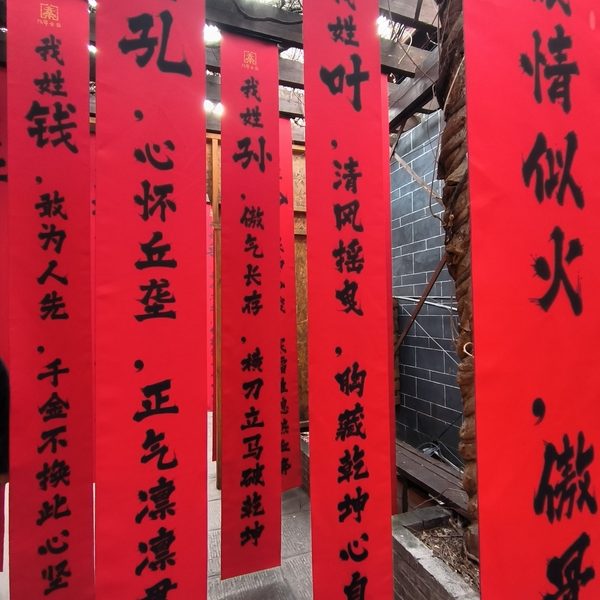 我姓钱，敢为人先，千金不换此心坚
孔，心怀丘垄，正气凛凛
我姓孙，傲气长存，横刀立马破乾坤
姓叶，清风摇曳，胸藏乾坤心自
情似火，傲骨